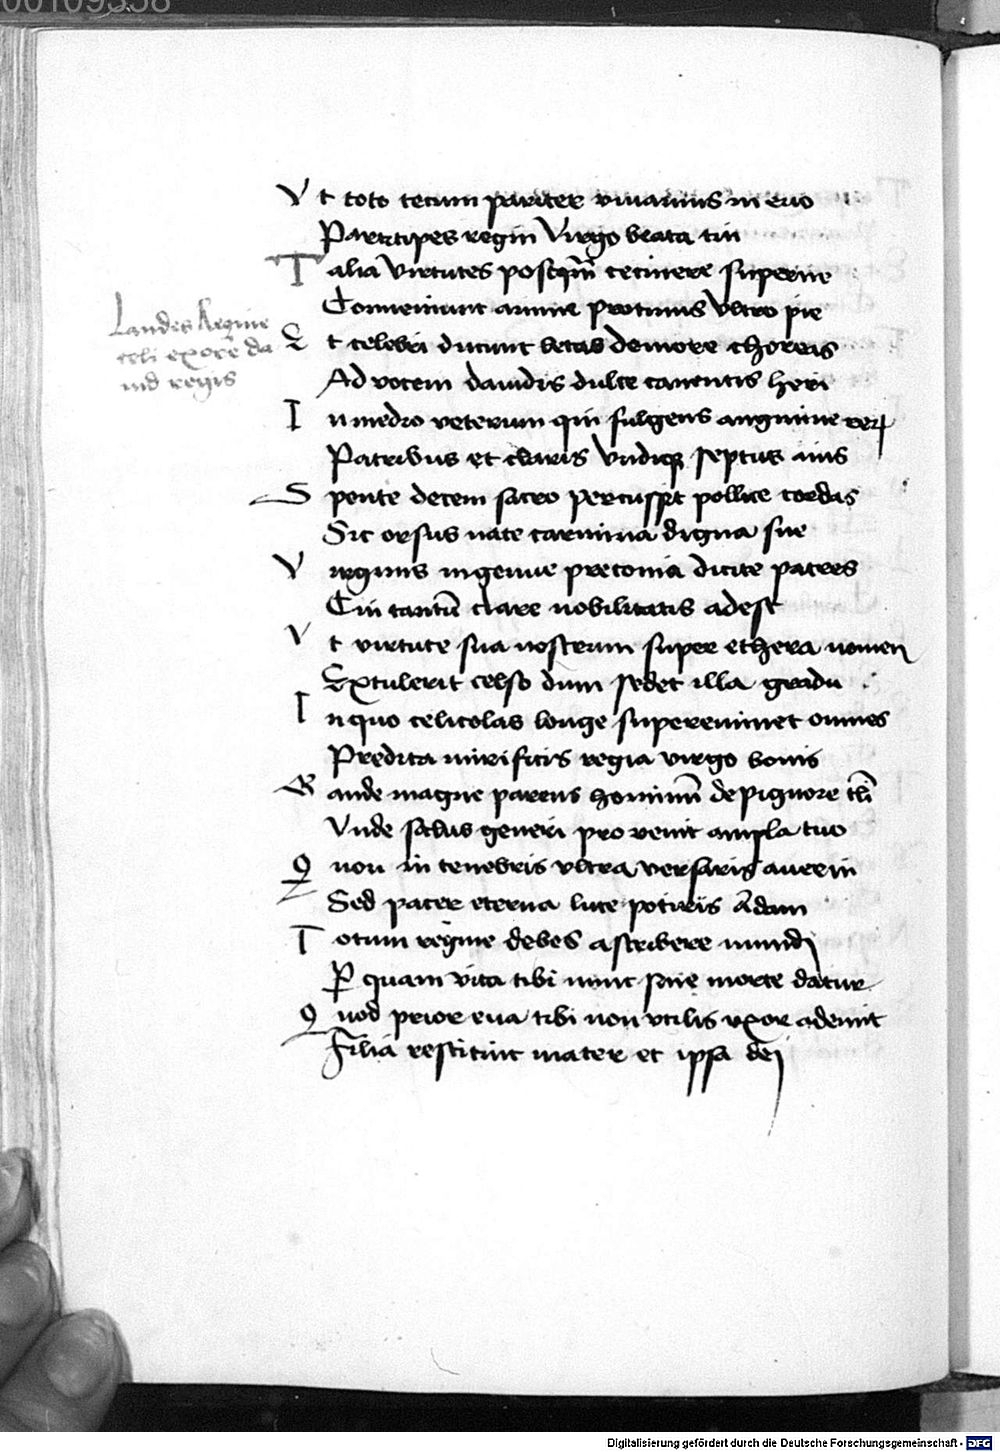 00109338
Vt toto tecum pariter viuamus in euo
Participes regni Virgo beata tui
Talia Virtutes postq̄m cecinere superne
Conueniunt anime protinus vltro pie
Laudes Regine
celi ex ore da
uid regis
Et celebri ducunt letas de more choreas
Ad vocem dauidis dulce canentis heri
In medio veterum qui fulgens angmine
Patribus et claris vndiqꝫ septus auis
Sponte decem sacro percussit pollice cordas
Sic orsus nate carmina digna sue
Virginis ingenue preconia dicite patres
Cui tantū clare nobilitatis adest
Vt virtute sua nostrum super ethera nomen
Extulerit celso dum sedet illa gradu
In quo celicolas longe supereminet omnes
Predita mirificis regia virgo bonis
Gaude magne parens hominū de pignore tali
Vnde salus generi prouenit ampla tuo
Qui non in tenebris vltra versaris auerni
Sed pater eterna luce potiris Adam
Totum regine debes ascribere mundi
Ꝑ quam vita tibi nunc sine morte datur
Quod prior eua tibi non vtilis vxor ademit
Filia restituit mater et ipsa dei
Digitalisierung gefördert durch die Deutsche Forschungsgemeinschaft - DFG